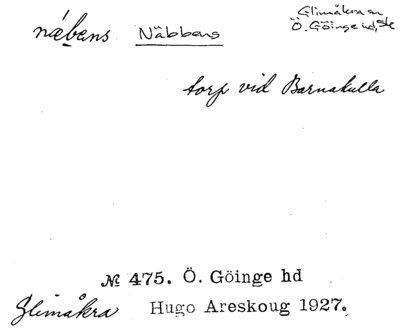 nǽbens Näbbens Glimåkra sn
Ö. Göinge hd, Sk
torp vid Barnakulla
№ 475. Ö. Göinge hd
Glimåkra Hugo Areskoug 1927.